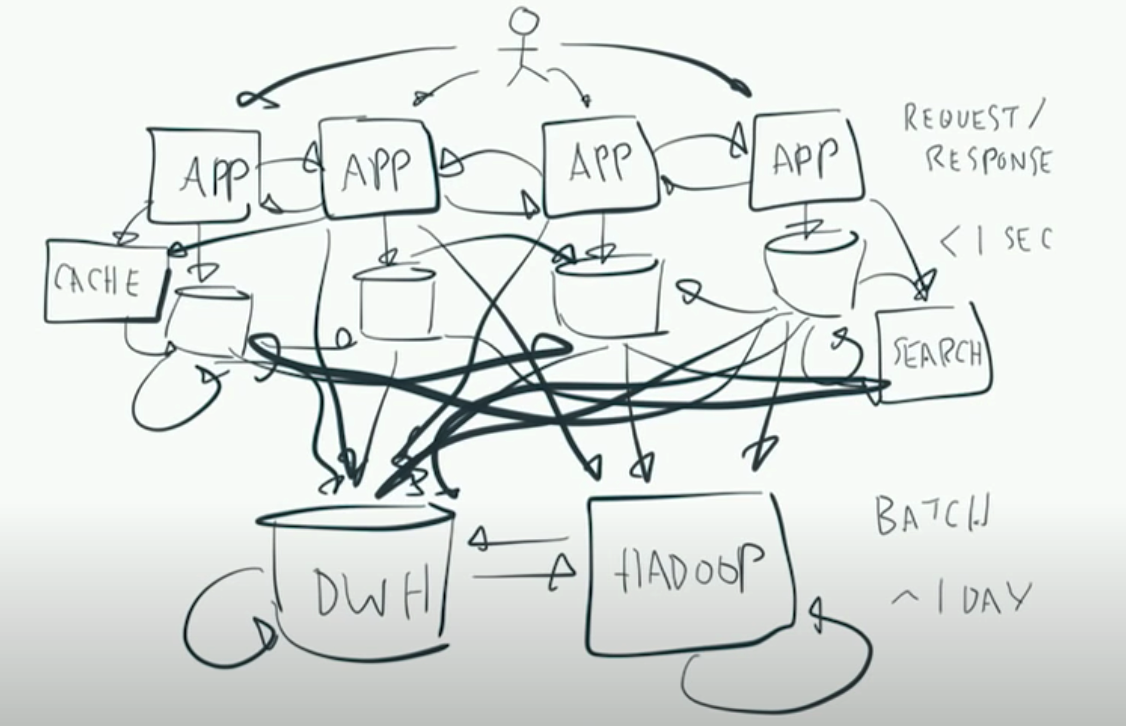 APP
APP
APP
APP
REQUEST/
RESPONSE
< 1 SEC
CACHE
SEARCH
DWH
HADOOP
BATCH
~ 1 DAY